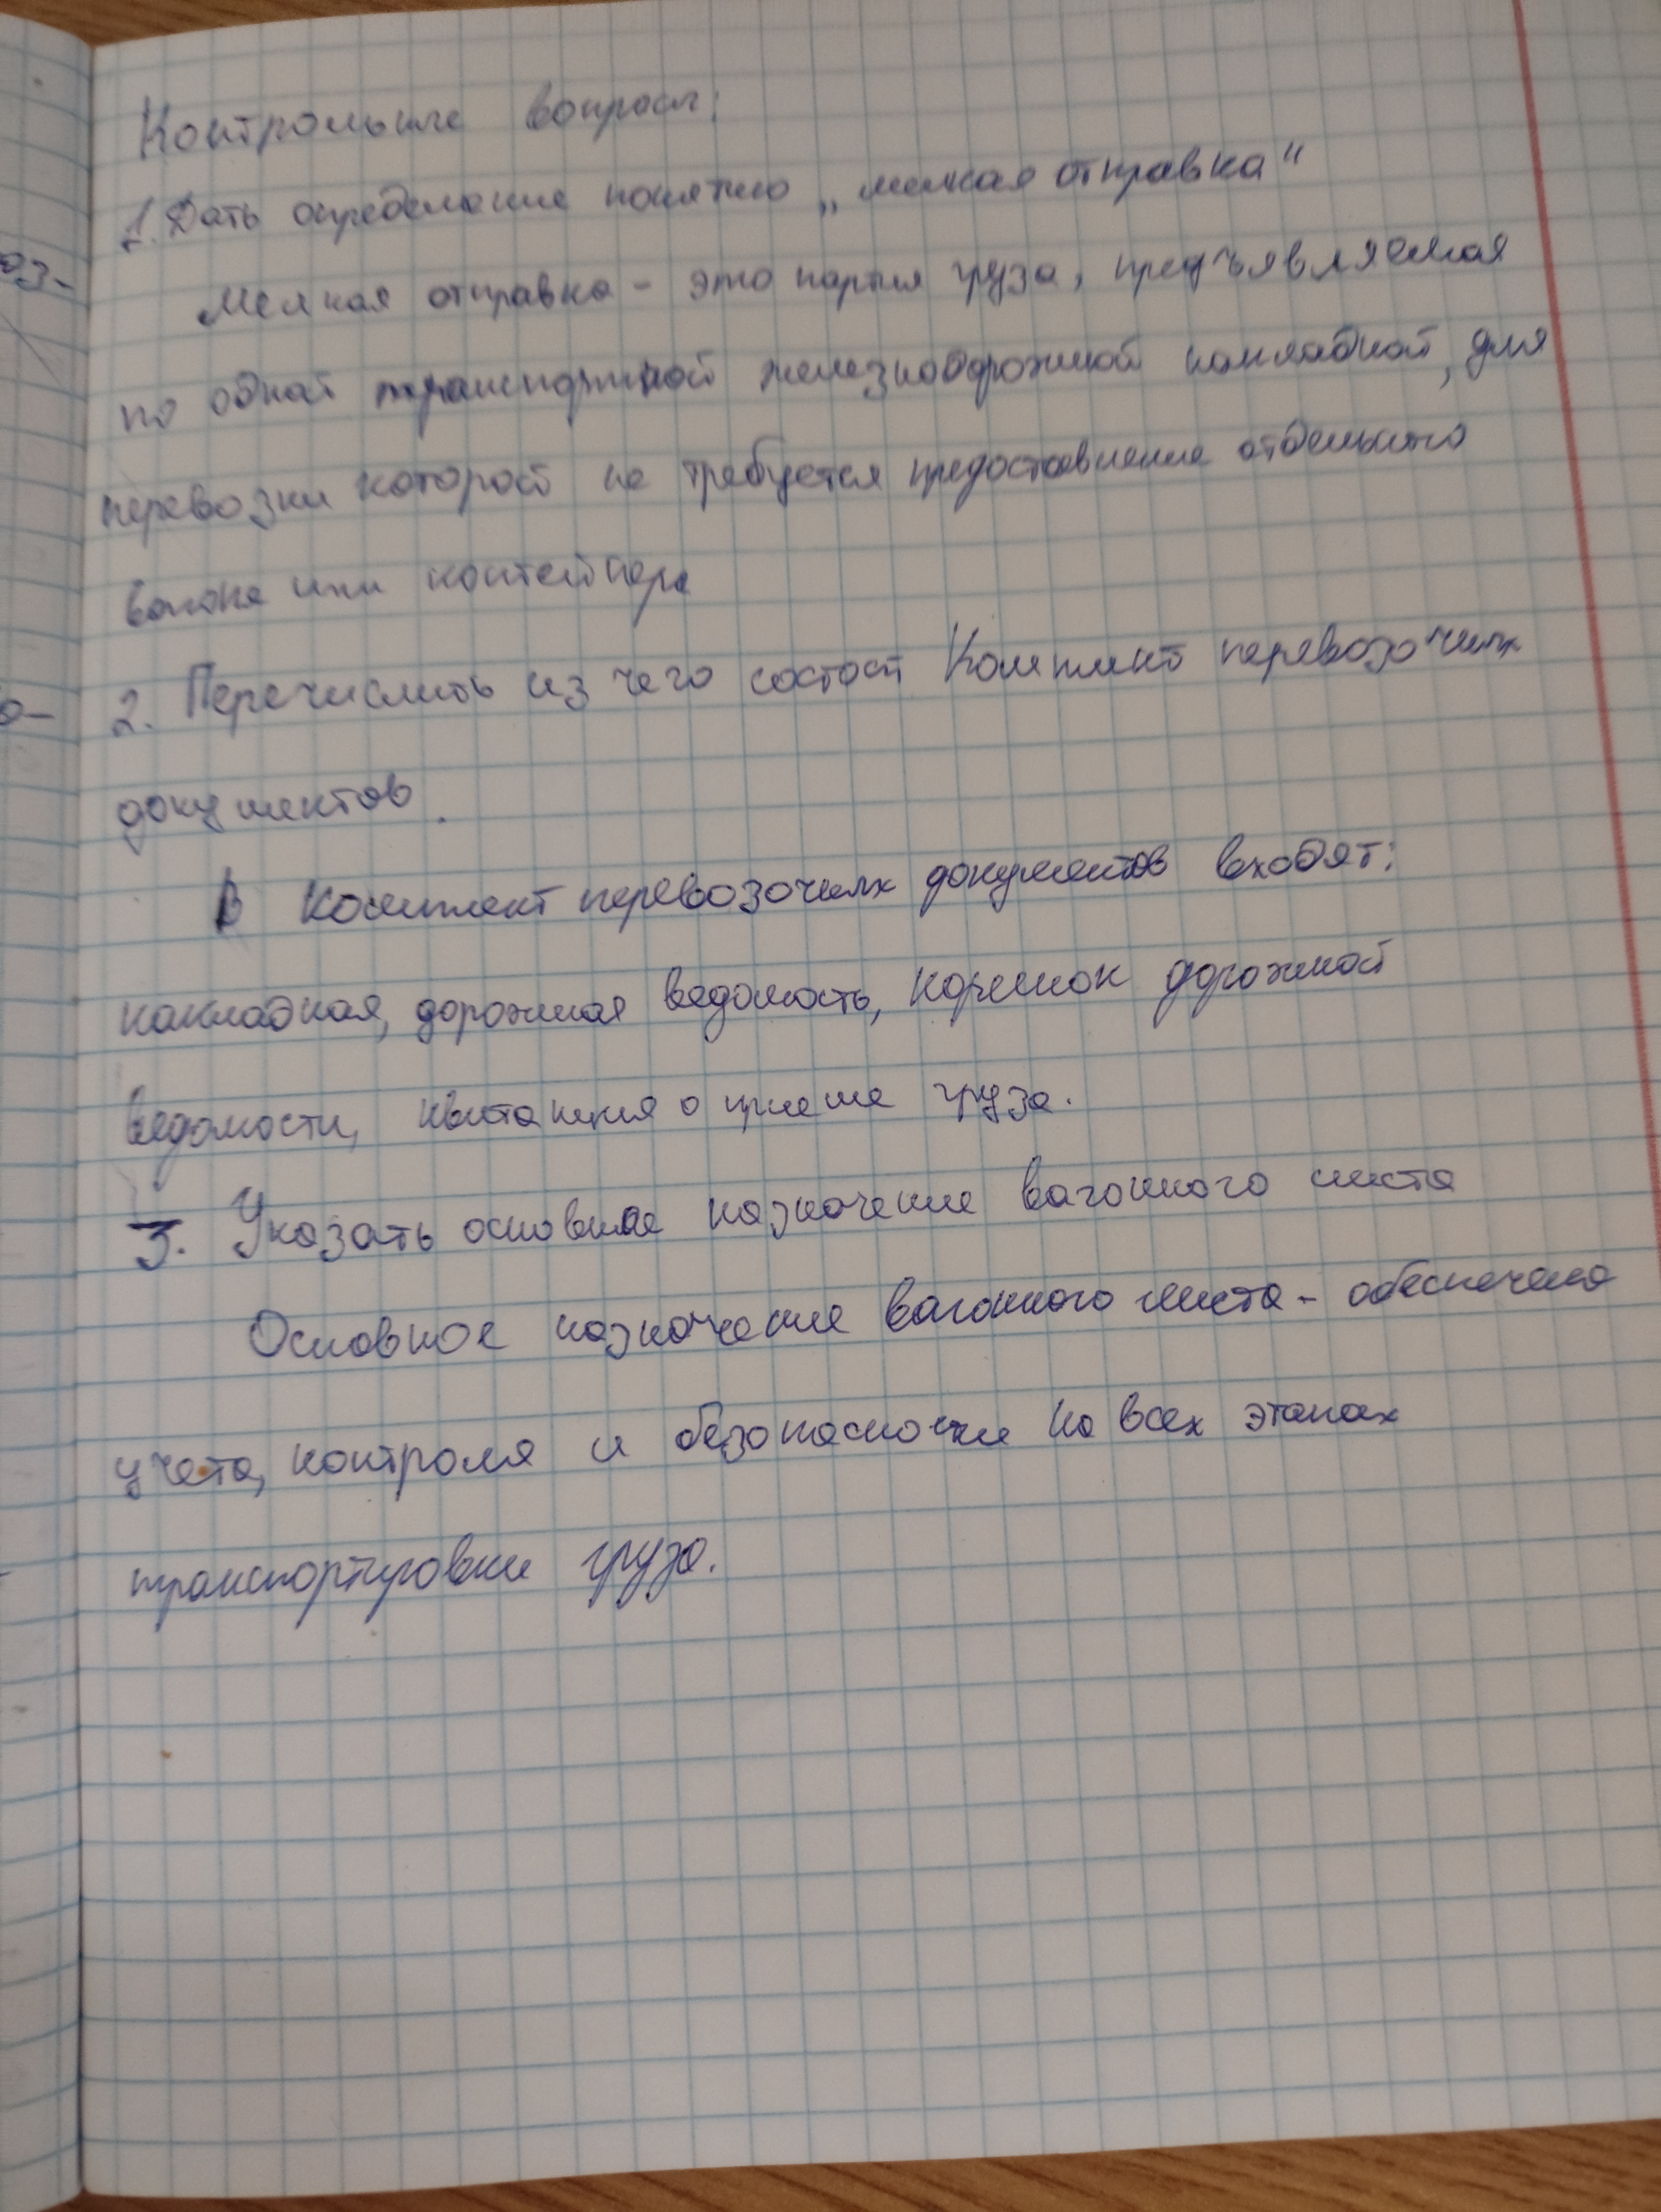 Контрольные вопросы:
1. Дать определение понятию „мелкая отправка“
Мелкая отправка - это партия груза, предъявляемая
по одной транспортной железнодорожной накладной, для
перевозки которой не требуется предоставление отдельного
вагона или контейнера
2. Перечислить из чего состоит Комплект перевозочных
документов.
В комплект перевозочных документов входят:
накладная, дорожная ведомость, корешок дорожной
ведомости, квитанция о приеме груза.
3. Указать основное назначение вагонного листа
Основное назначение вагонного листа - обеспечение
учета, контроля и безопасности на всех этапах
транспортировки груза.
оз-
о-